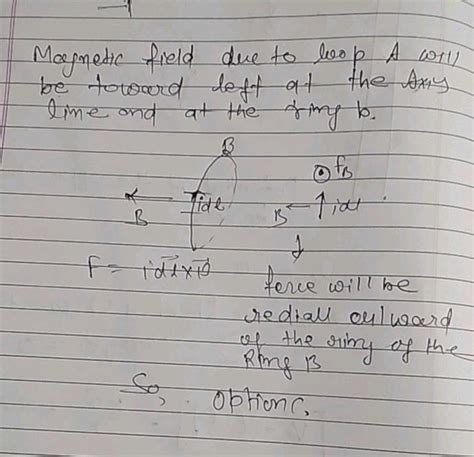 Magnetic field due to loop A will
be toward left at the Axis
line and at the ring b.
B
⊙ fB
B
idl
B ← ↑ idl
F = idl×B
force will be
rediall outward
of the ring of the
Ring B
So, option c.